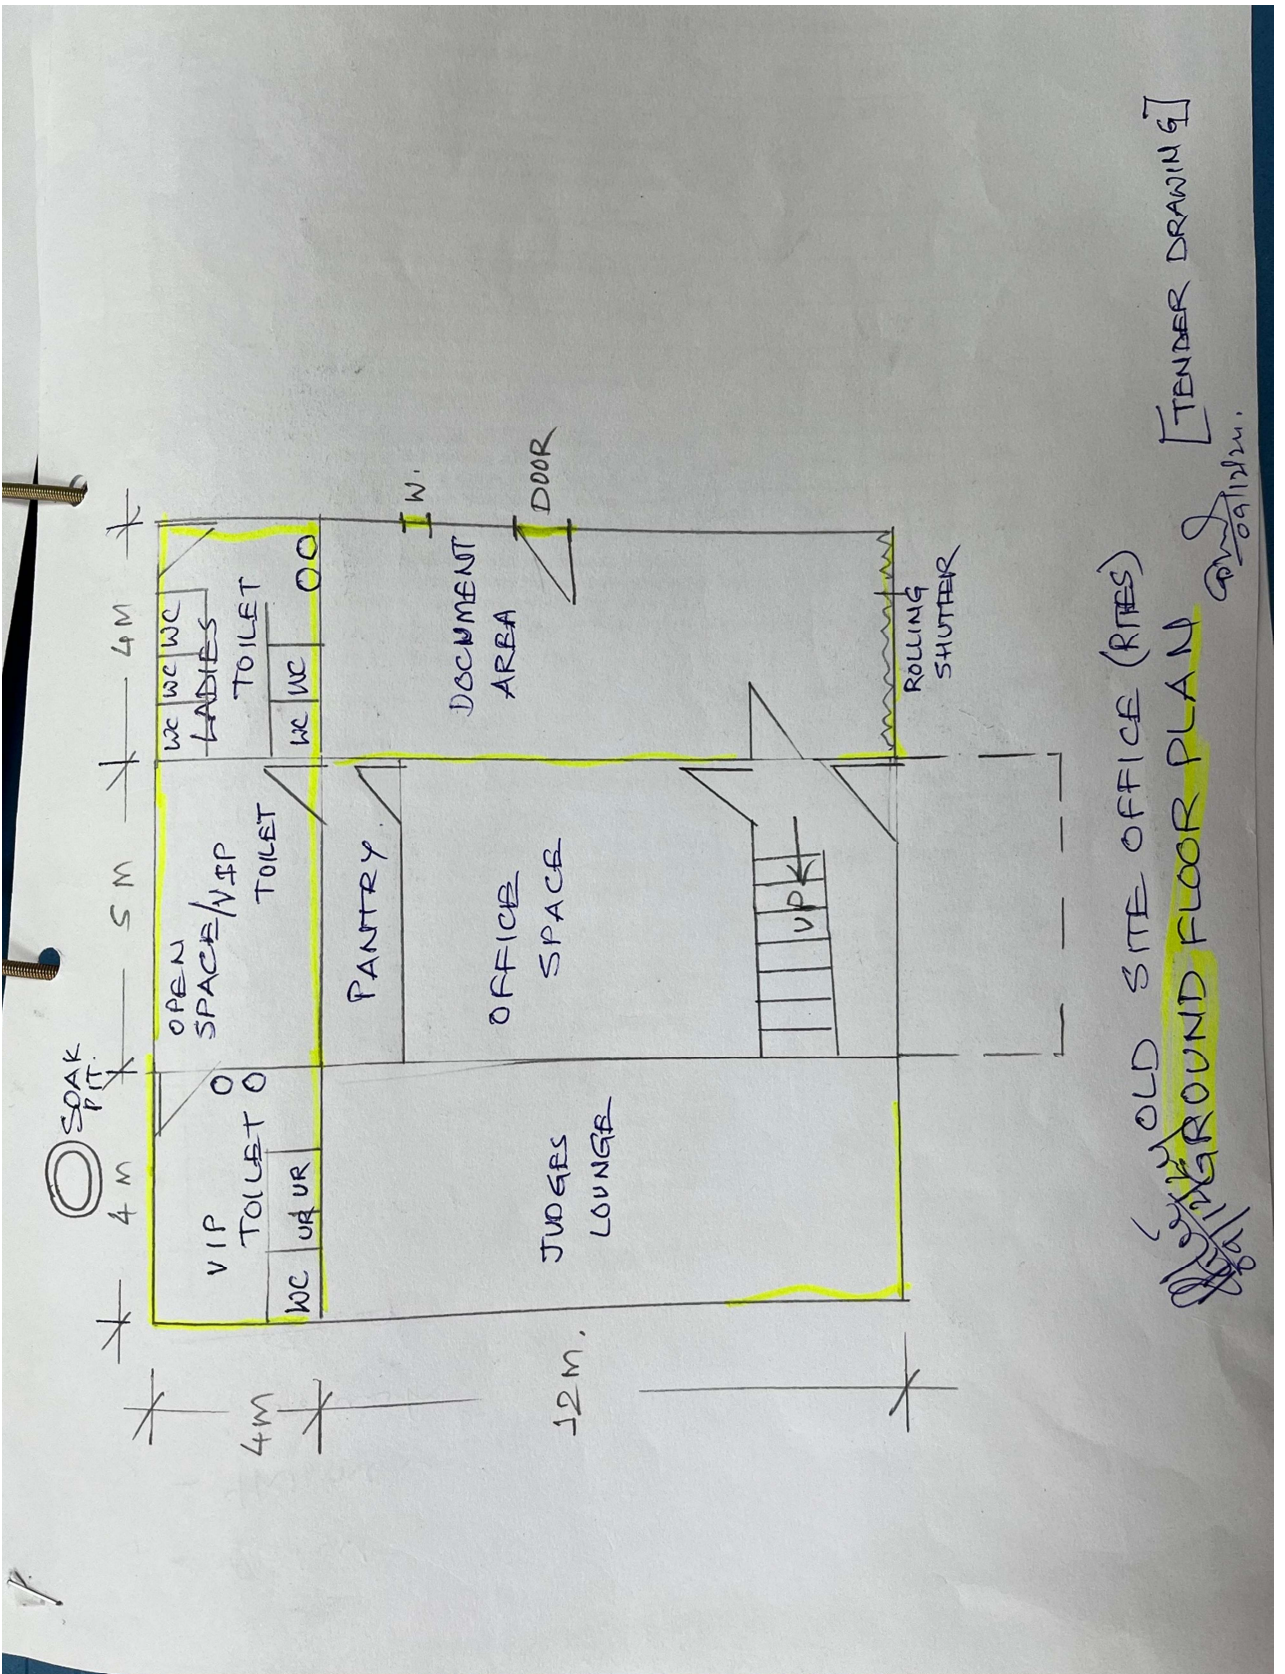 SOAK
PIT.
4 M
5 M
4M
4M
12 M.
VIP
TOILET
WC
UR
UR
OPEN
SPACE/VIP
TOILET
WC
WC
WC
LADIES
TOILET
WC
WC
PANTRY
W.
DOOR
JUDGES
LOUNGE
OFFICE
SPACE
DOCUMENT
AREA
UP
ROLLING
SHUTTER
OLD SITE OFFICE (RITES)
GROUND FLOOR PLAN
[TENDER DRAWING]